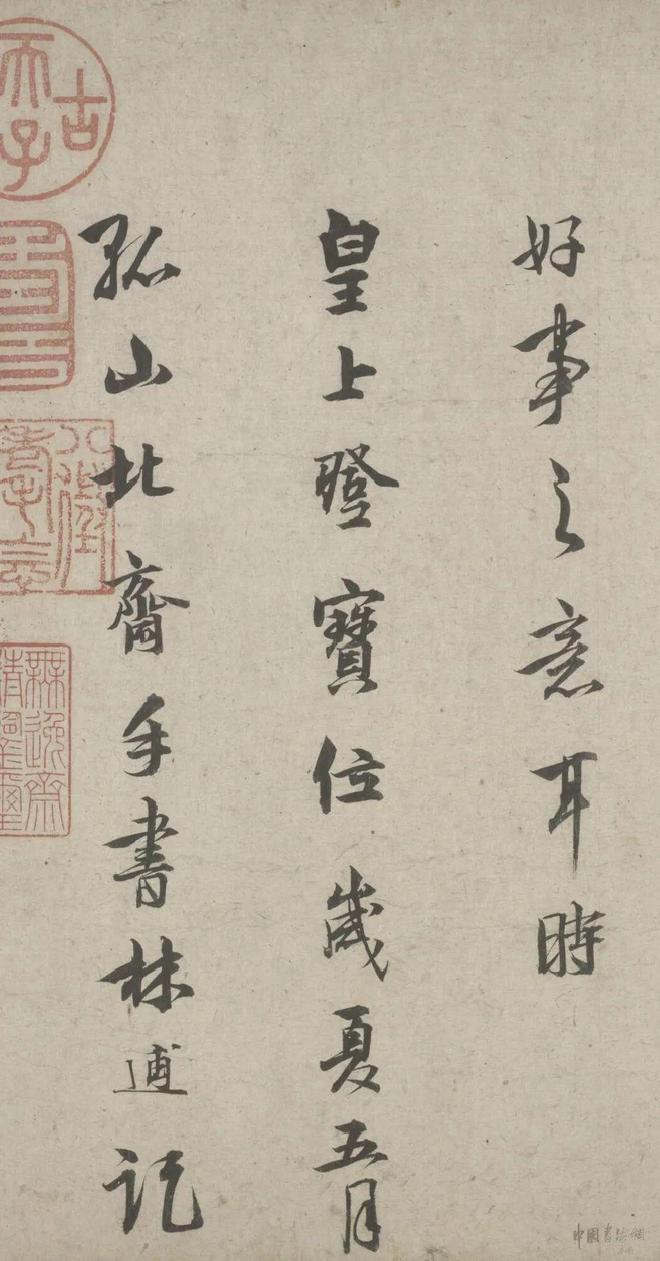 好事之意耳時
皇上登寶位歲夏五月
孤山北齋手書林逋記
古
天子
無逸齋
中國書法網